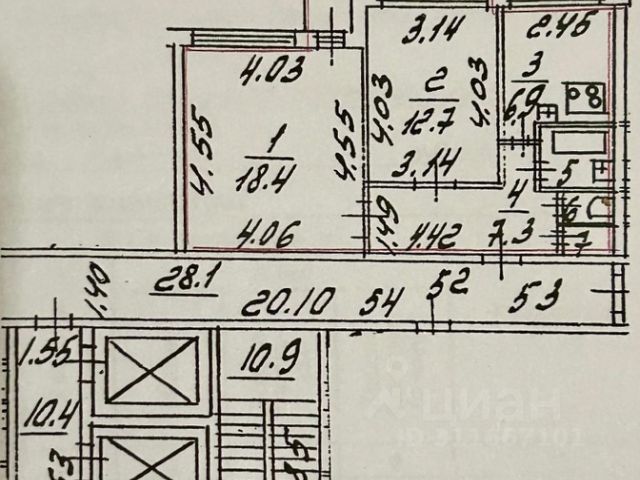 3.14
2.45
4.03
2
12.7
4.03
4.03
3
6.9
4.55
1
18.4
4.55
3.14
5
4.06
1.49
4.42
4
7.3
6
7
1.40
28.1
20.10
54
52
53
1.55
10.9
10.4
циан